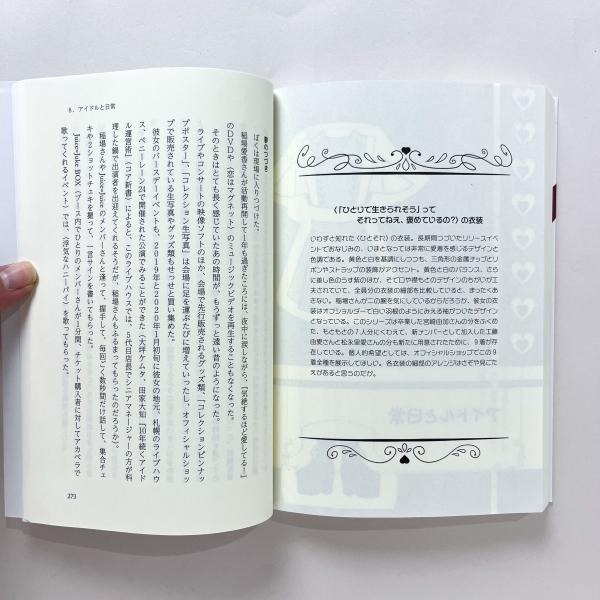 8. アイドルと日常
夢のつづき
ぼくは現場に入りつづけた。
稲場愛香さんが活動再開して1年も過ぎたころには、夜中に涙しながら、「気絶するほど愛してる!」
のDVDや〈恋はマグネット〉のミュージックビデオを再生することもなくなった。
そのときはとても長く感じていたあの時間が、もうずっと遠い昔のようになった。
ライブやコンサートの映像ソフトのほか、会場で先行販売されるグッズ類、「コレクションピンナッ
プポスター」、「コレクション生写真」は会場に足を運ぶたびに増えていったし、オフィシャルショッ
プで販売されている生写真やグッズ類もせっせと買い集めた。
彼女のバースデーイベントも、2019年と2020年1月初旬に彼女の地元、札幌のライブハウ
ス、ペニーレーン24で開催された公演でみることができた(大坪ケムタ、田家大知『10年続くアイド
ル運営術』(コア新書)によると、このライブハウスでは、5代目店長でシニアマネージャーの方が料
理した鍋で出演者を出迎えてくれるそうだが、稲場さんもふるまってもらったのだろうか)。
稲場さんやJuice=Juiceのメンバーさんと逢って、握手して、毎回ごく数秒間だけ話して、集合チェ
キや2ショットチェキを撮って、一言サインを書いてもらった。
Juice=Juke BOX(ブース内でひとりのメンバーさんが1分間、チケット購入者に対してアカペラで
歌ってくれるイベント)では、〈浮気なハニーパイ〉を歌ってもらった。
273
〈「ひとりで生きられそう」って
それってねえ、褒めているの?〉の衣装
いわずと知れた〈ひとそれ〉の衣装。長期間つづいたリリースイベ
ントでおなじみの、いまとなっては非常に愛着を感じるデザインと
色調である。黄色と白を基調にしつつも、三角形の金属チップとリ
ボンやストラップの装飾がアクセント。黄色と白のバランス、さら
に差し色のうす紫のほか、そで口や襟もとのデザインのちがいが工
夫されていて、全員分の衣装の細部を比較していると、まったくあ
きない。稲場さんが二の腕を気にしているからだろうか、彼女の衣
装はオフショルダーで白い羽根のようにみえる袖がついたデザイン
となっている。このシリーズは卒業した宮崎由加さんの分をふくめ
た、もともとの7人分にくわえて、新ナンバーとして加入した工藤
由愛さんと松永里愛さんの分も新たに用意されたために、9着が存
在している。個人的希望としては、オフィシャルショップでこの9
着全種を展示してほしい。各衣装の細部のアレンジはさぞや見ごた
えがあると思うのだが。
アイドルと日常